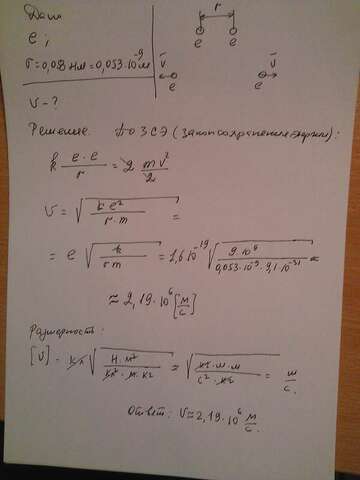 Дано
r
e;
e e
r=0,053 нм=0,053·10⁻⁹м
v⃗ v⃗
e e
v-?
Решение. По ЗСЭ (закон сохранения энергии):
k e·e/r = 2 mv²/2
v = √(ke²/(r·m)) =
= e √(k/(rm)) = 1,6·10⁻¹⁹ √(9·10⁹/(0,053·10⁻⁹·9,1·10⁻³¹)) ≈
≈ 2,19·10⁶ [м/с]
Размерность:
[v] = Кл √(Н·м²/(Кл²·м·кг)) = √(кг·м·м/(с²·кг)) = м/с.
Ответ: v≈2,19·10⁶ м/с.